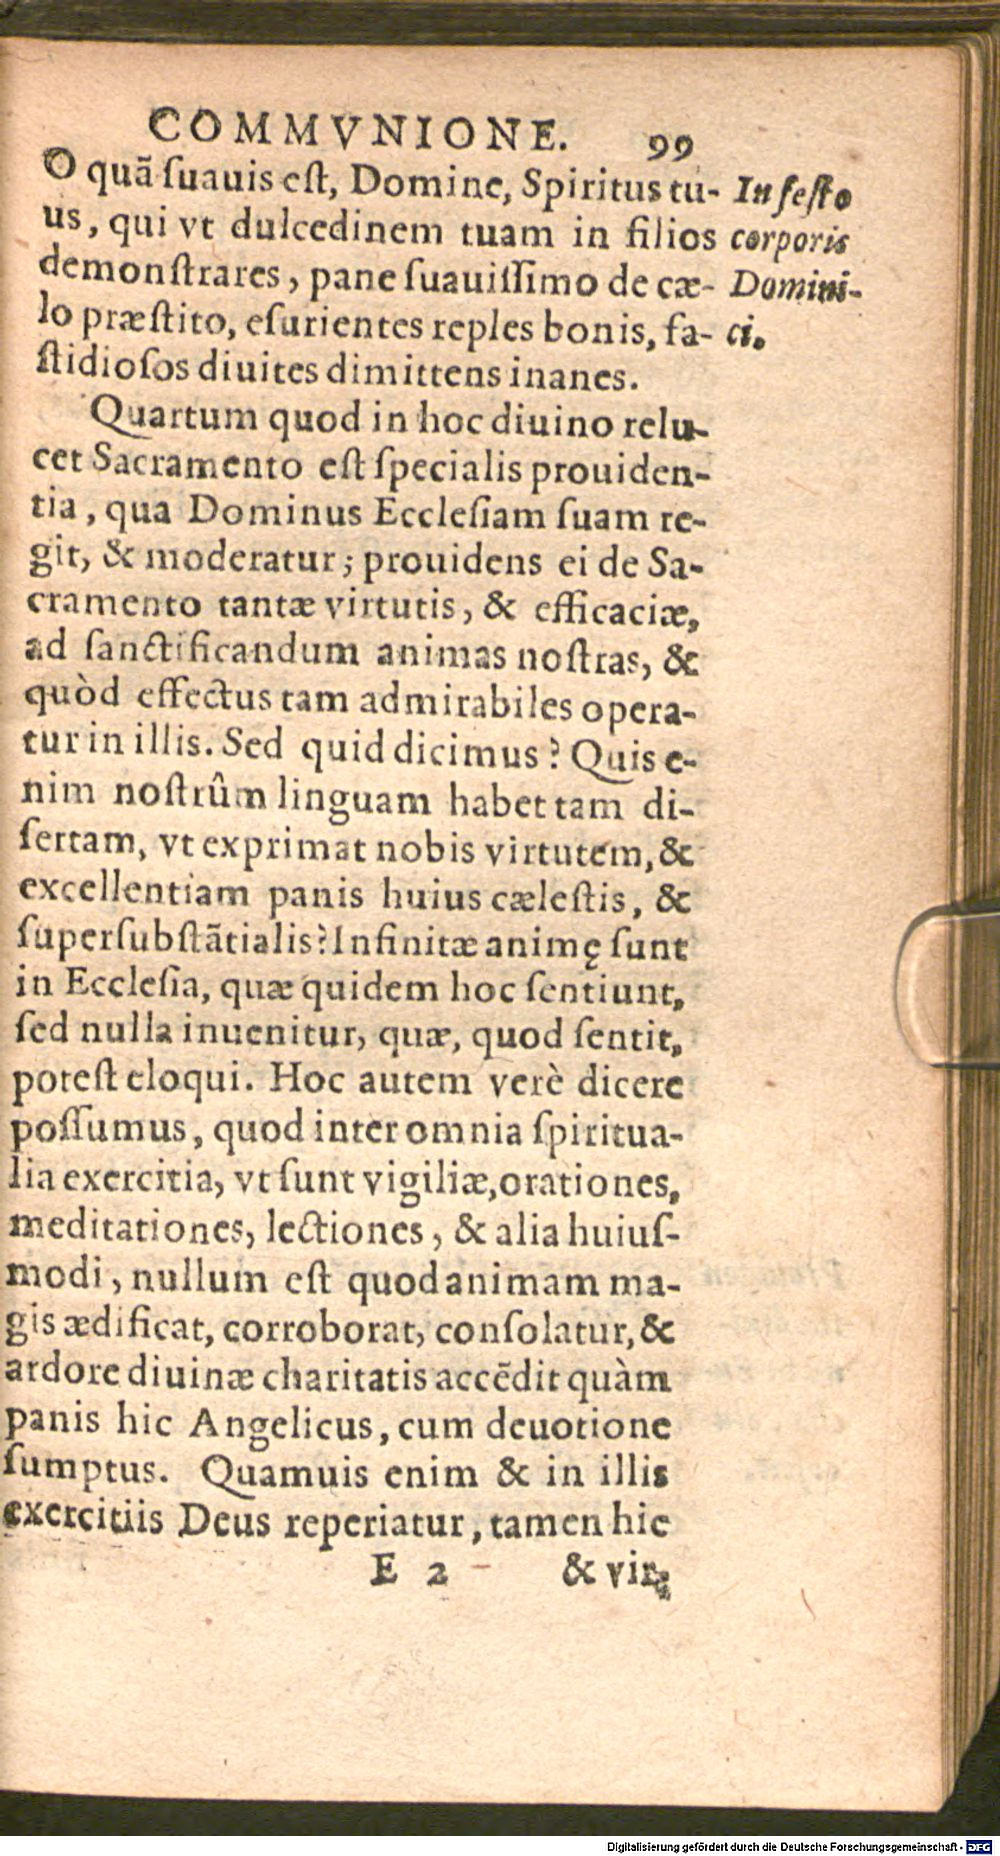 COMMVNIONE. 99
O quã ſuauis eſt, Domine, Spiritus tu-
us, qui vt dulcedinem tuam in filios
demonſtrares, pane ſuauiſſimo de cæ-
lo præſtito, eſurientes reples bonis, fa-
ſtidioſos diuites dimittens inanes.
In feſto
corporis
Domini-
ci.
Quartum quod in hoc diuino relu-
cet Sacramento eſt ſpecialis prouiden-
tia, qua Dominus Eccleſiam ſuam re-
git, & moderatur; prouidens ei de Sa-
cramento tantæ virtutis, & efficaciæ,
ad ſanctificandum animas noſtras, &
quòd effectus tam admirabiles opera-
tur in illis. Sed quid dicimus? Quis e-
nim noſtrûm linguam habet tam di-
ſertam, vt exprimat nobis virtutem, &
excellentiam panis huius cæleſtis, &
ſuperſubſtãtialis? Infinitæ animę ſunt
in Eccleſia, quæ quidem hoc ſentiunt,
ſed nulla inuenitur, quæ, quod ſentit,
poteſt eloqui. Hoc autem verè dicere
poſſumus, quod inter omnia ſpiritua-
lia exercitia, vt ſunt vigiliæ, orationes,
meditationes, lectiones, & alia huiuſ-
modi, nullum eſt quod animam ma-
gis ædificat, corroborat, conſolatur, &
ardore diuinæ charitatis accẽdit quàm
panis hic Angelicus, cum deuotione
ſumptus. Quamuis enim & in illis
exercitiis Deus reperiatur, tamen hic
E 2 & vir-
Digitalisierung gefördert durch die Deutsche Forschungsgemeinschaft - DFG